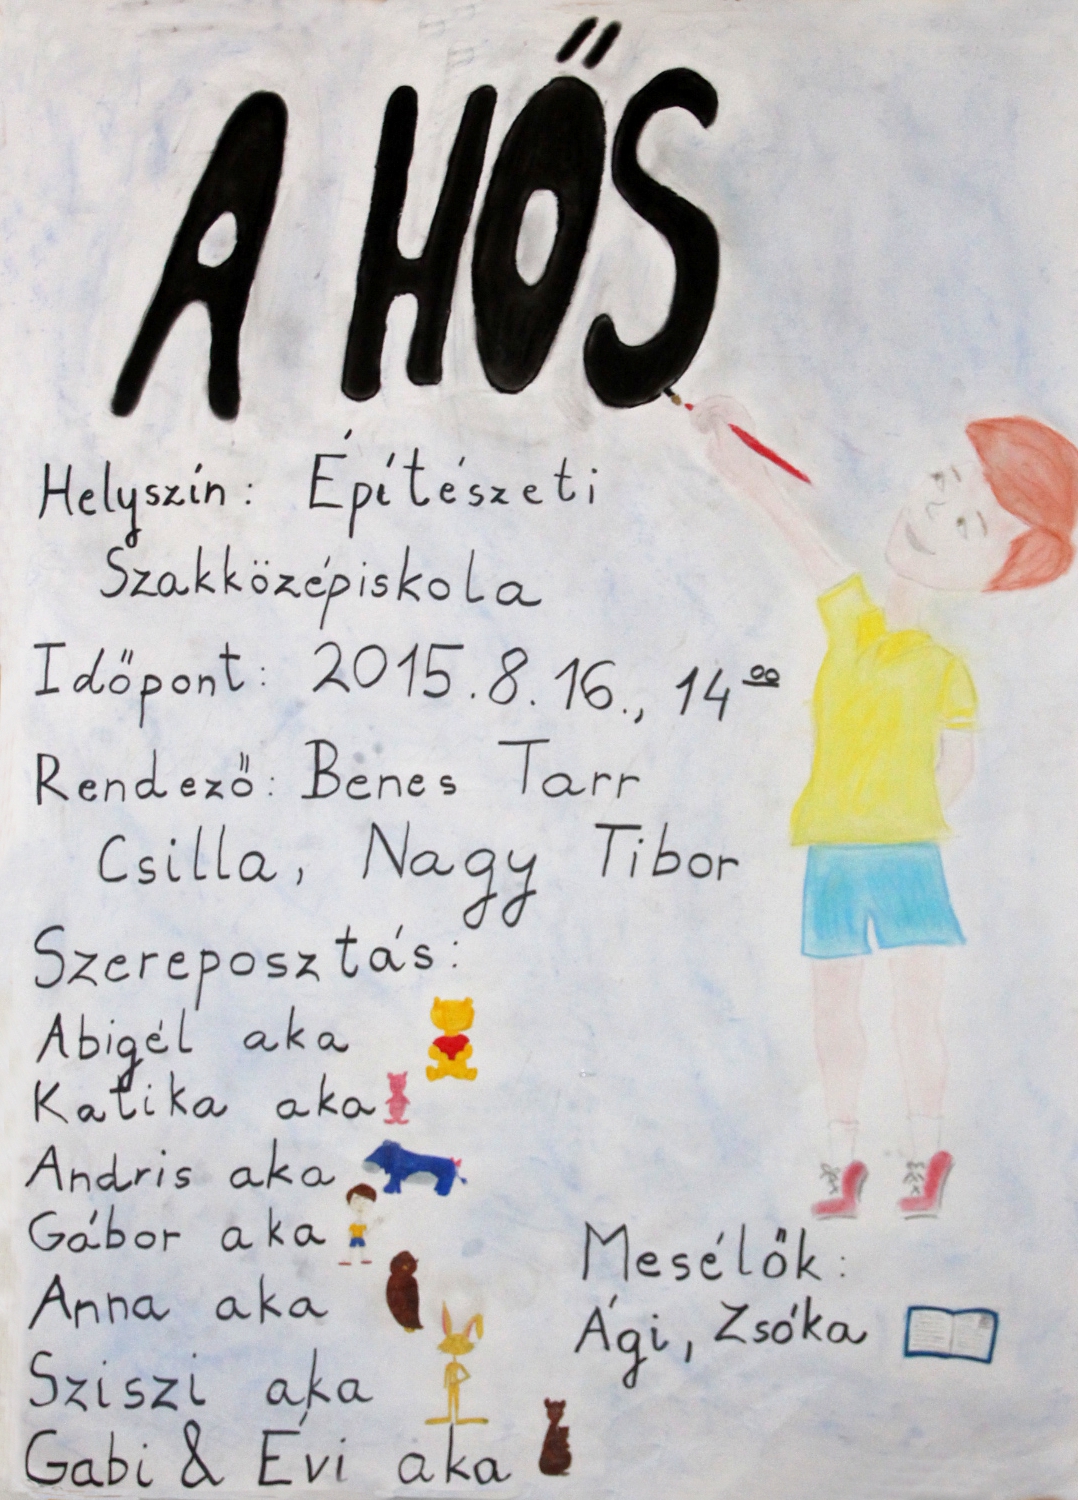 A HŐS
Helyszín: Építészeti
Szakközépiskola
Időpont: 2015.8.16., 14 00
Rendező: Benes Tarr
Csilla, Nagy Tibor
Szereposztás:
Abigél aka
Katika aka
Andris aka
Gábor aka
Anna aka
Sziszi aka
Gabi & Évi aka
Mesélők:
Ági, Zsóka